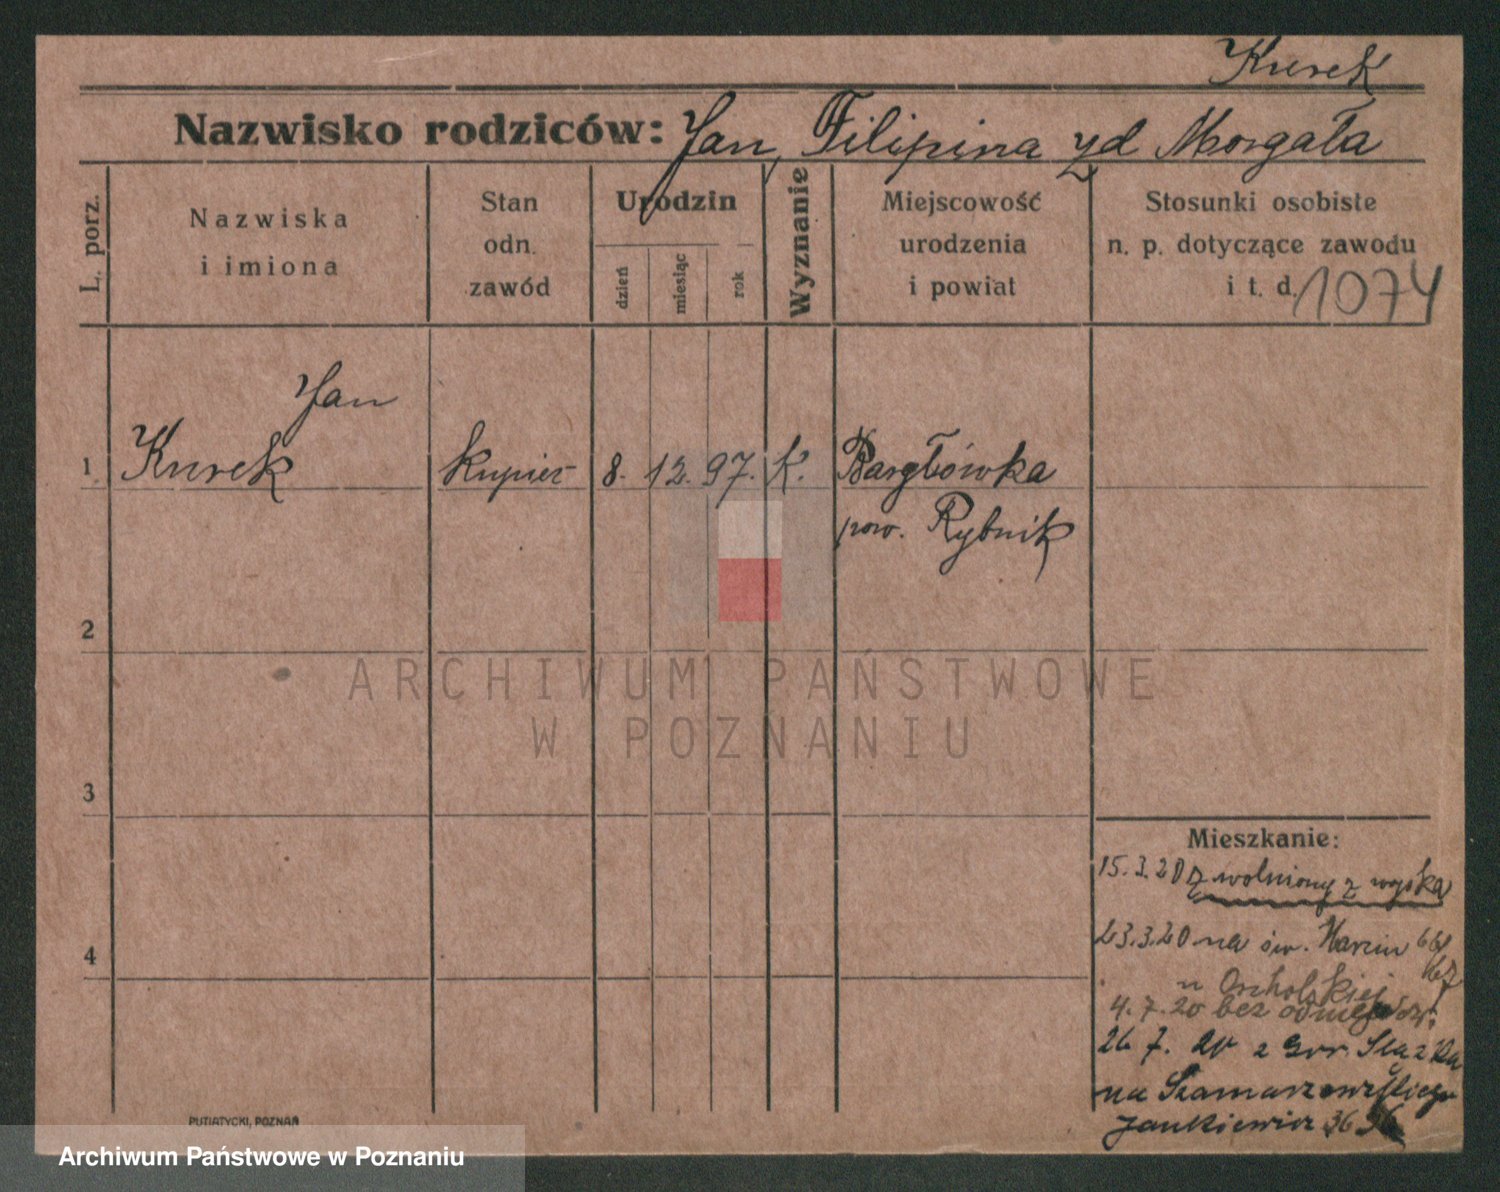 Kurek
Nazwisko rodziców: Jan, Filipina zd Morgała
L. porz.
Nazwiska
i imiona
Stan
odn.
zawód
Urodzin
dzień
miesiąc
rok
Wyznanie
Miejscowość
urodzenia
i powiat
Stosunki osobiste
n. p. dotyczące zawodu
i t. d.
1074
Jan
1 Kurek kupiec 8. 12. 97. k. Bargłówka
pow. Rybnik
2
3
4
ARCHIWUM PAŃSTWOWE
W POZNANIU
Mieszkanie:
15.3.20 zwolniony z wojska
23.3.20 na św. Marcin
u Orcholskiej
4.7.20 bez
26 7. 20 z
na Szamarzewskiego
Jankiewicz 36
PUTIATYCKI, POZNAŃ
Archiwum Państwowe w Poznaniu